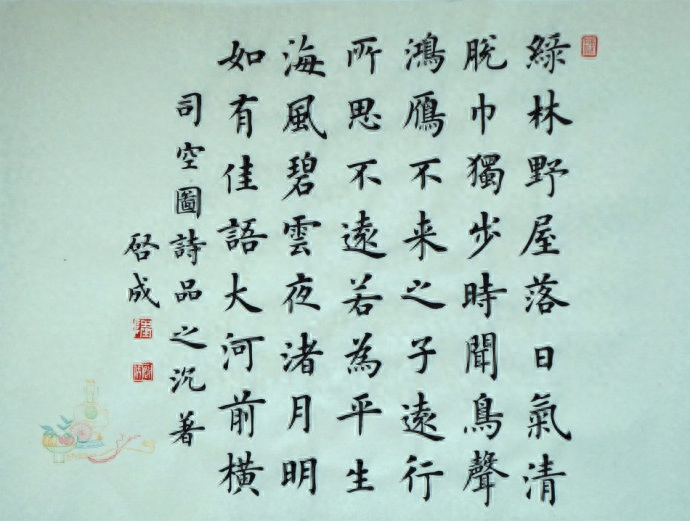 綠林野屋落日氣清
脫巾獨步時聞鳥聲
鴻雁不来之子遠行
所思不遠若為平生
海風碧雲夜渚月明
如有佳語大河前橫
司空圖詩品之沉著
啓成